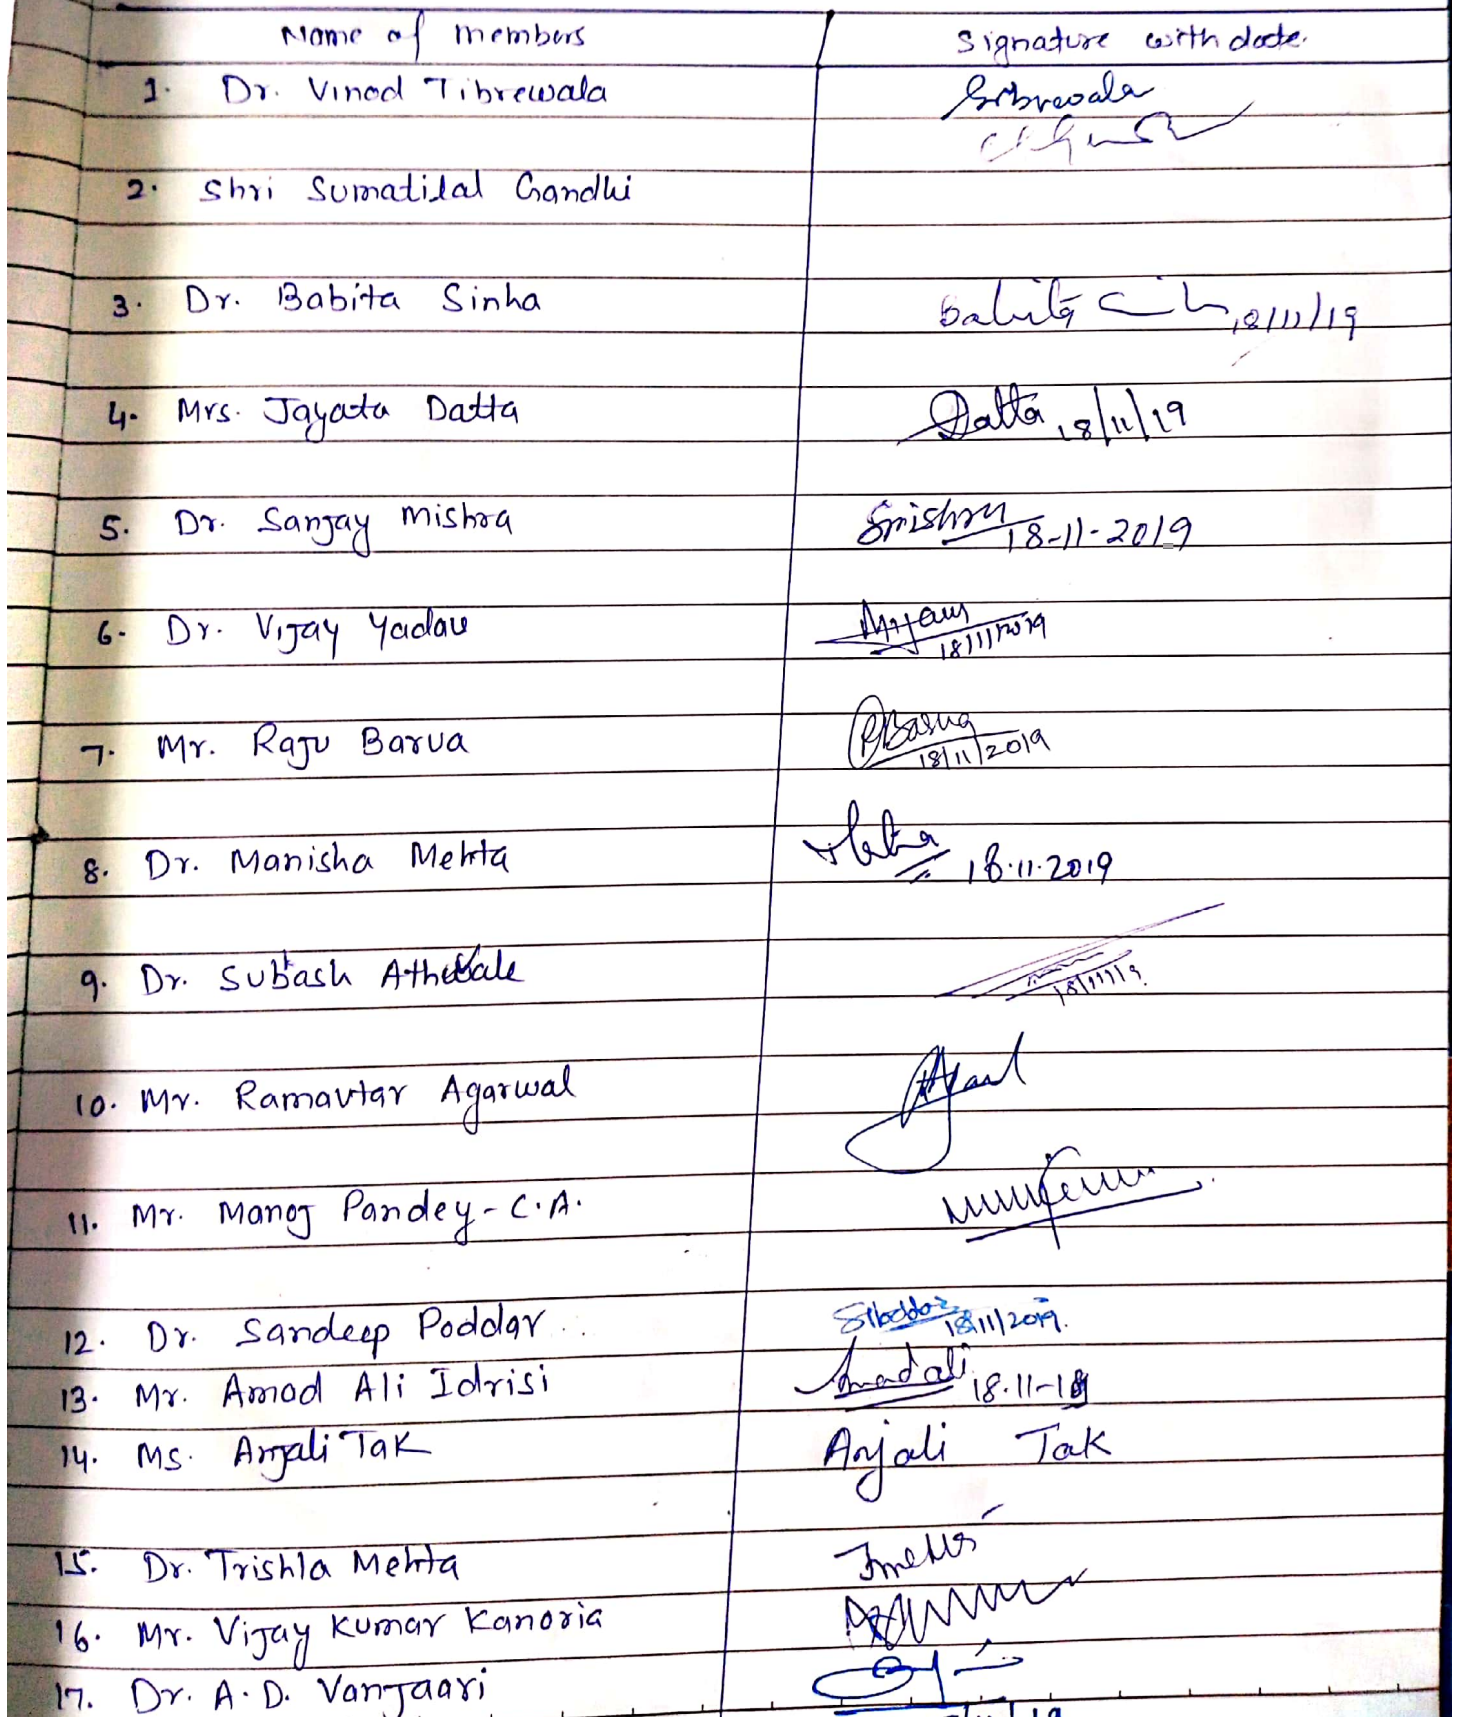 Name of members Signature with date.
1. Dr. Vinod Tibrewala
2. Shri Sumatilal Gandhi
3. Dr. Babita Sinha Babita 18/11/19
4. Mrs. Jayata Datta Datta 18/11/19
5. Dr. Sanjay Mishra Smishra 18-11-2019
6. Dr. Vijay Yadav 18/11/2019
7. Mr. Raju Barua RBarua 18/11/2019
8. Dr. Manisha Mehta 18.11.2019
9. Dr. Subash Athavale 18/11/19
10. Mr. Ramavtar Agarwal
11. Mr. Manoj Pandey - C.A.
12. Dr. Sandeep Poddar SPoddar 18/11/2019.
13. Mr. Amod Ali Idrisi Amad ali 18.11-19
14. Ms. Anjali Tak Anjali Tak
15. Dr. Trishla Mehta
16. Mr. Vijay Kumar Kanoria
17. Dr. A.D. Vanjaari